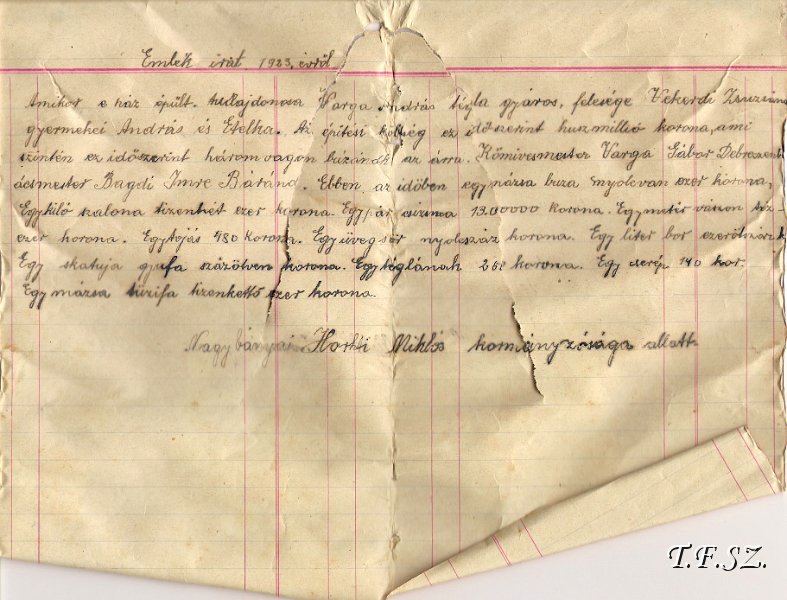 Emlék irat 1923. évről
Amikor e ház épült. tulajdonosa Varga András tégla gyáros, felesége Vekerdi Zsuzsánna
gyermekei András és Etelka. Az épitési költség ez időszerint huszmillió korona, ami
szintén ez időszerint háromvagon búzának az árra. Kőmivesmester Varga Gábor Debreczenbe
ácsmester Bagdi Imre Báránd. Ebben az időben egy mázsa buza nyolcvan ezer korona,
Egy kiló szalona tizenhét ezer korona. Egy pár csizma 13.00000 korona. Egy metér vászon tiz-
ezer korona. Egy tojás 480 korona. Egy üveg sör nyolcszáz korona. Egy liter bor ezerötszáz k
Egy skatuja gyufa százötven korona. Egy téglának 260 korona. Egy cserép 140 kor.
Egy mázsa tüzifa tizenkettő ezer korona.
Nagybányai Horthi Miklós kormányzósága allatt
T.F.SZ.